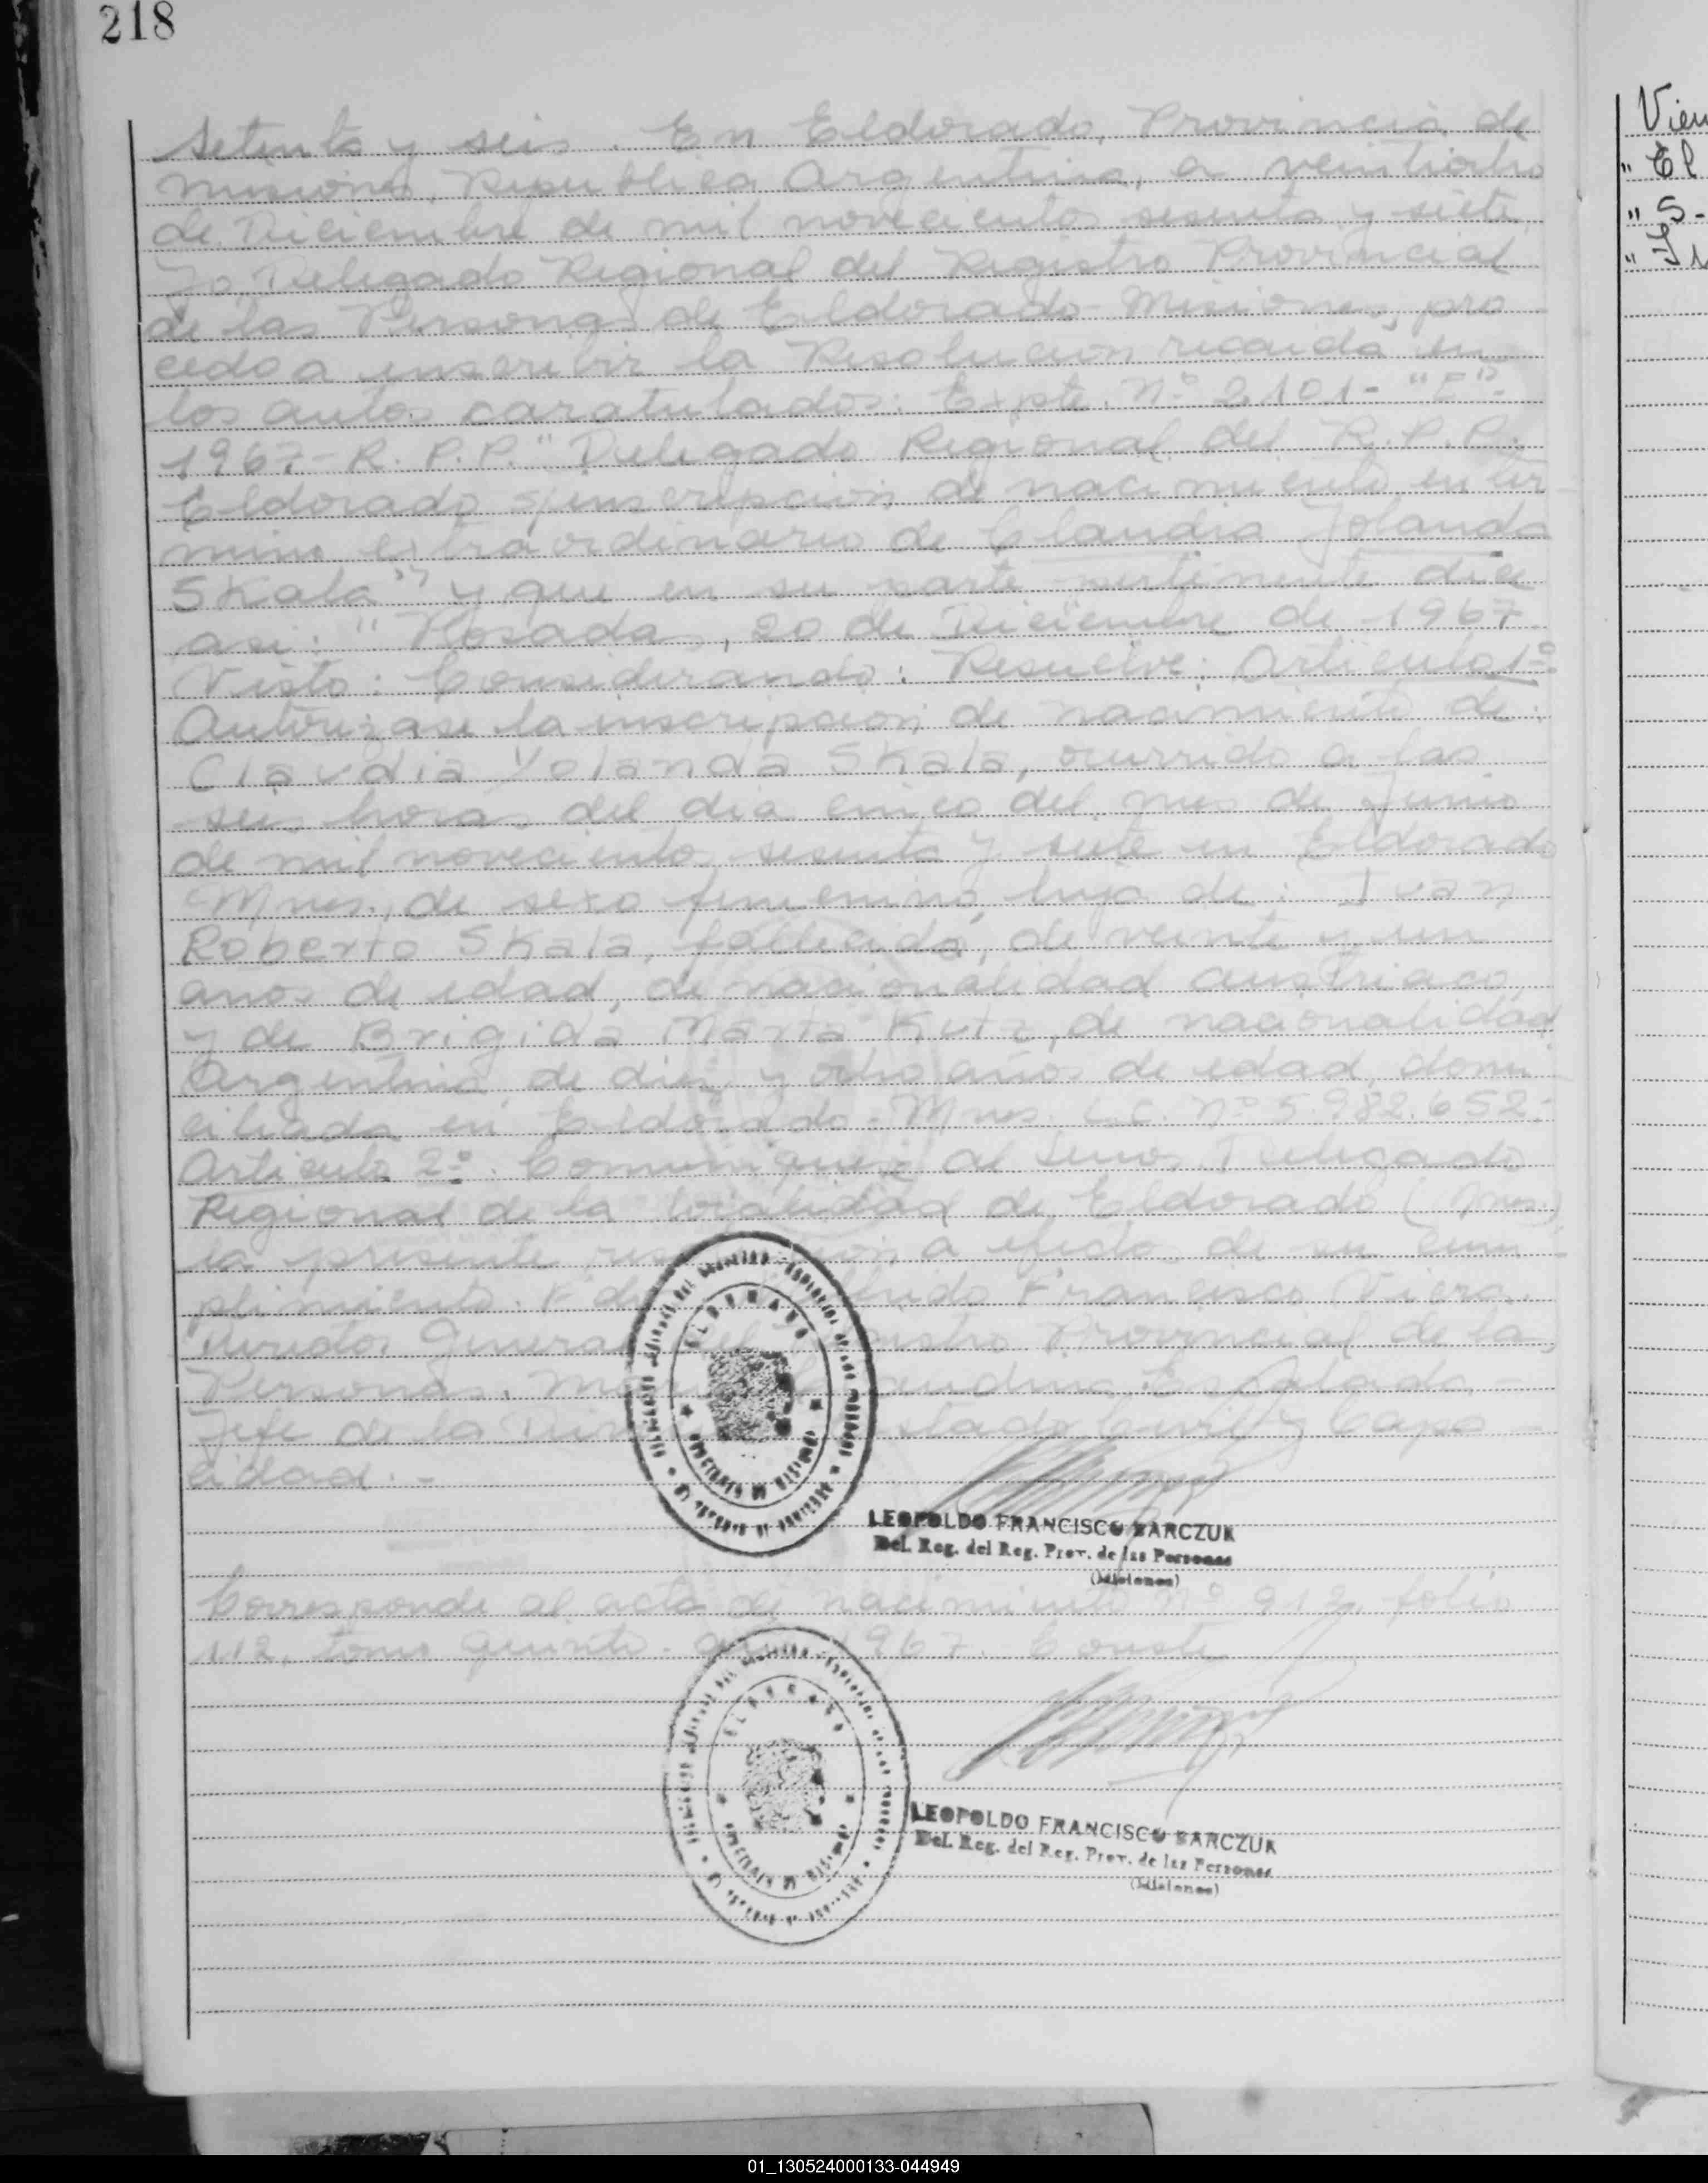 218
Setenta y seis. En Eldorado, Provincia de
Misiones, República Argentina, a veintiocho
de Diciembre de mil novecientos sesenta y siete,
Yo Delegado Regional del Registro Provincial
de las Personas de Eldorado-Misiones, pro-
cedo a inscribir la Resolución recaída en
los autos caratulados: Expte. Nº 2.101-
1967-R.P.P. "Delegado Regional del R.P.P.
Eldorado s/inscripción de nacimiento en tér-
mino extraordinario de Claudia Yolanda
Skala" y que en su parte pertinente dice
asi: "Posadas, 20 de Diciembre de 1967
Visto: Considerando: Resuelve: Artículo 1º
Autorizase la inscripción de nacimiento de:
Claudia Yolanda Skala, ocurrido a las
seis horas del dia cinco del mes de Junio
de mil novecientos sesenta y siete en Eldorado
Mnes., de sexo femenino, hija de: Ivan
Roberto Skala, fallecido, de veinte y un
años de edad, de nacionalidad austriaco,
y de Brigida Marta Kutz, de nacionalidad
Argentina de diez y ocho años de edad, domi-
ciliada en Eldorado-Mnes. L.C. Nº 5.982.652-
Artículo 2º. Comuníquese al señor Delegado
Regional de la localidad de Eldorado (Mnes.)
la presente resolución, a efecto de su cum-
plimiento. Fdo. Francisco Viera.
Director General del Registro Provincial de las
Personas.
Jefe de la Estado Civil y Capa-
cidad.-
ELDORADO
LEOPOLDO FRANCISCO BARCZUK
Del. Reg. del Reg. Prov. de las Personas
(Misiones)
Corresponde al acta de nacimiento Nº 912, folio
112, tomo quinto. año 1967. Conste
ELDORADO
LEOPOLDO FRANCISCO BARCZUK
Del. Reg. del Reg. Prov. de las Personas
(Misiones)
Vien
" El
" S-
01_130524000133-044949